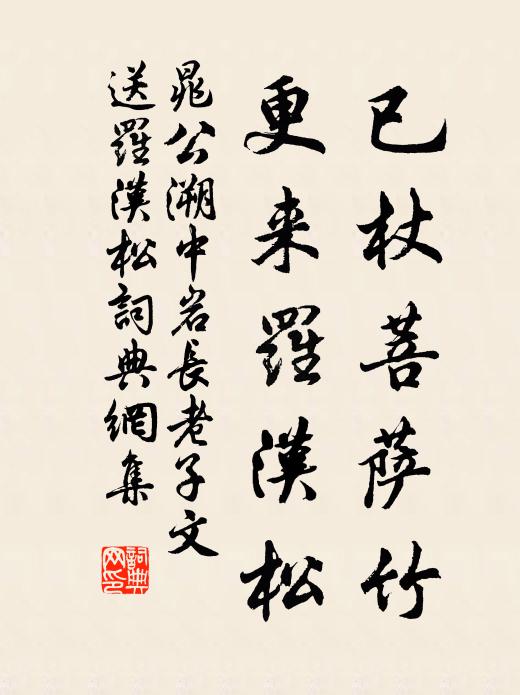 已杖菩萨竹
更来羅漢松
晁公溯中岩長老子文
送羅漢松詞典網集
詞典
网印